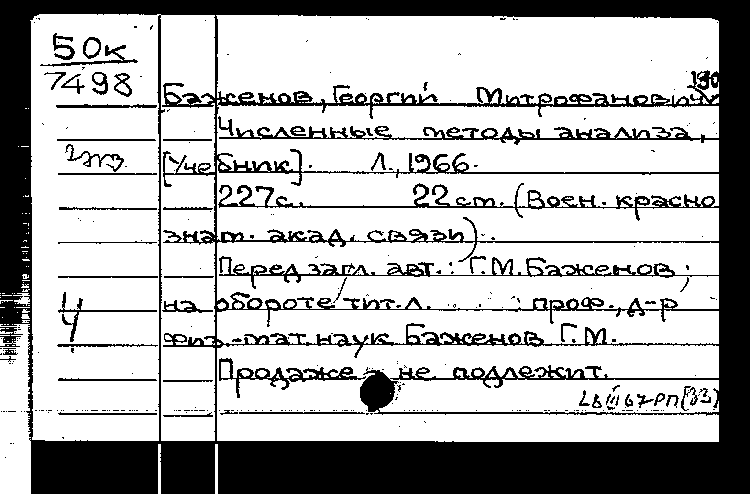 50к
7498
Баженов, Георгий Митрофанович
Численные методы анализа,
[Учебник]. Л., 1966.
227с. 22 см. (Воен. красно
знам. акад. связи).
Перед загл. авт.: Г.М. Баженов;
на обороте тит. л. : проф., д-р
физ.-мат. наук Баженов Г.М.
Продаже - не подлежит.